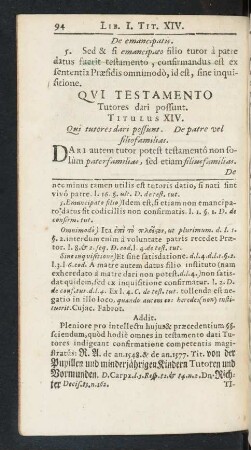 94 LIB. I. TIT. XIV.
De emancipato.
5. Sed & si emancipato filio tutor à patre
datus fuerit testamento, confirmandus est ex
sententia Præsidis omnimodò, id est, sine inqui-
sitione.
QVI TESTAMENTO
Tutores dari possunt.
TITULUS XIV.
Qui tutores dari possunt. De patre vel
filiofamilias.
DARI autem tutor potest testamentò non so-
lùm paterfamilias, sed etiam filiusfamilias.
De
nec minus tamen utilis est tutoris datio, si nati sint
vivô patre. l. 16. §. ult. D. de test. tut.
5. Emancipato filio] Idem est, si etiam non emancipa-
to datus sit codicillis non confirmatis. l. 1. §. 1. D. de
confirm. tut.
Omnimodò] Ita ut plurimum. d. l. 1.
§. 2. interdum enim à voluntate patris recedet Præ-
tor. l. 8. & 2. seq. D. eod. l. 4. C. de test. tut.
Sine inquisitione] Et sine satisdatione. d. l. 4. d. §. 2.
l. 3. C. eod. A matre autem datus filio instituto (nam
exheredatô à matre dari non potest. d. l. 4.) non satis-
dat quidem, sed ex inquisitione confirmatur. l. 2. D.
de conf. tut. d. l. 4. Ex l. 4. C. de test. tut. tollenda est ne-
gatio in illo loco, quando autem
Cujac. Fabrot.
Addit.
Pleniore pro intellectu hujus & præcedentium §§
sciendum, quòd hodiè omnes in totum dati Tuto-
res indigeant confirmatione competentis magi-
stratûs: R. A. de an. 1548. & de an. 1577. Tit. von der
Pupillen und minderjährigen Kindern Tutoren und
Vormunden. D. Carpz. Dn. Rich-
ter Decis. 82. n. 162. TI-